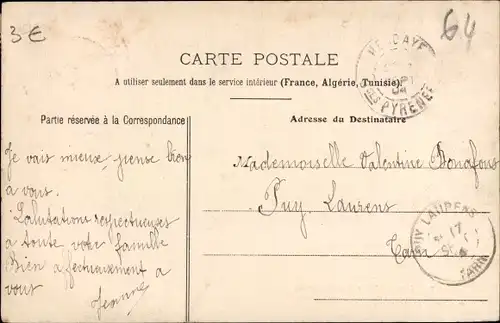 3€
64
HENDAYE
CARTE POSTALE
Bses PYRENEES
A utiliser seulement dans le service intérieur (France, Algérie, Tunisie).
Partie réservée à la Correspondance
Adresse du Destinataire
Je vais mieux, pense bien
a vous.
Salutations respectueuses
a toute votre famille
Bien affectueusement a
vous
Jeanne
Mademoiselle Valentine Bonafous
Puy Laurens
Tarn
PUY LAURENS
17
TARN